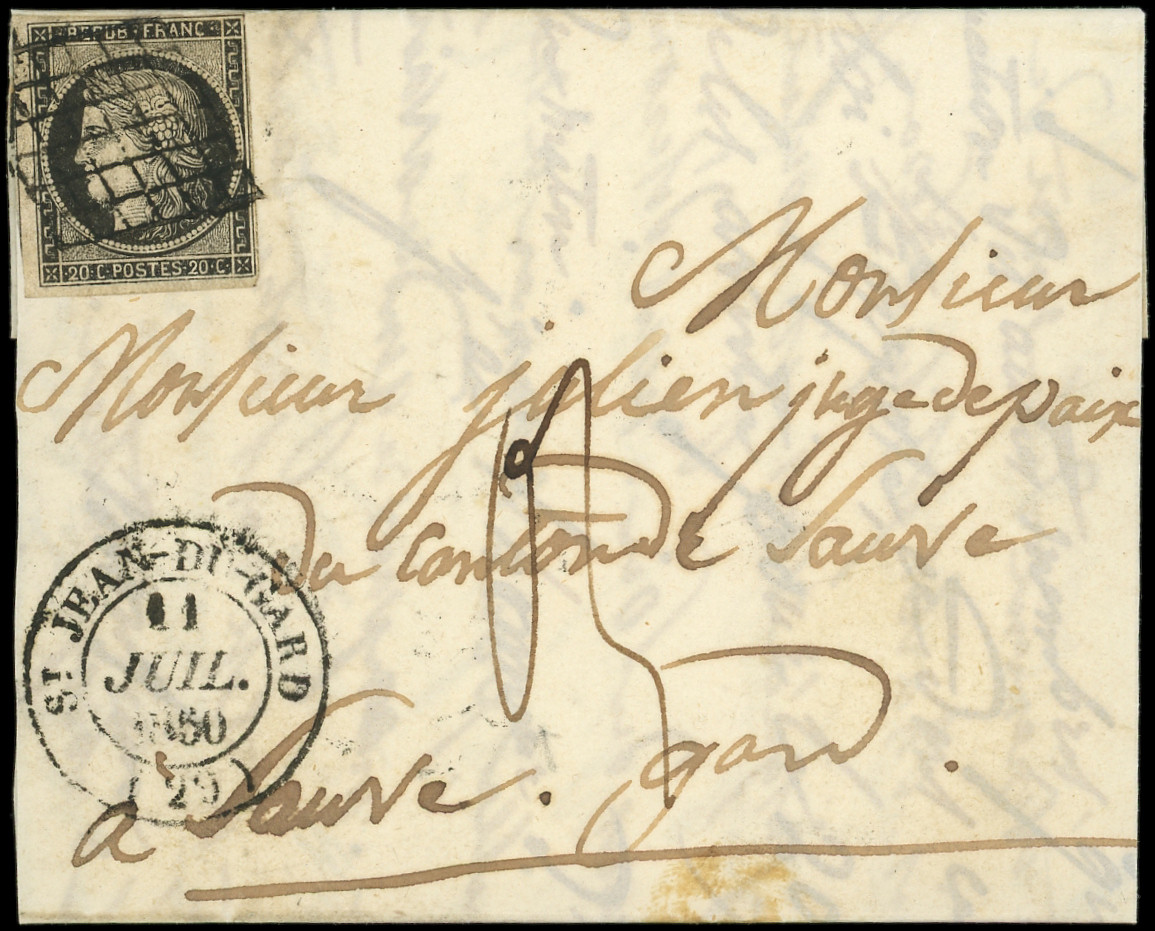 REPUB·FRANC
20·C·POSTES·20·C·
Monsieur
Monsieur jolien juge de paix
du canton de Sauve
ST JEAN-DU-GARD
11
JUIL.
1850
(29)
à Sauve. gard.